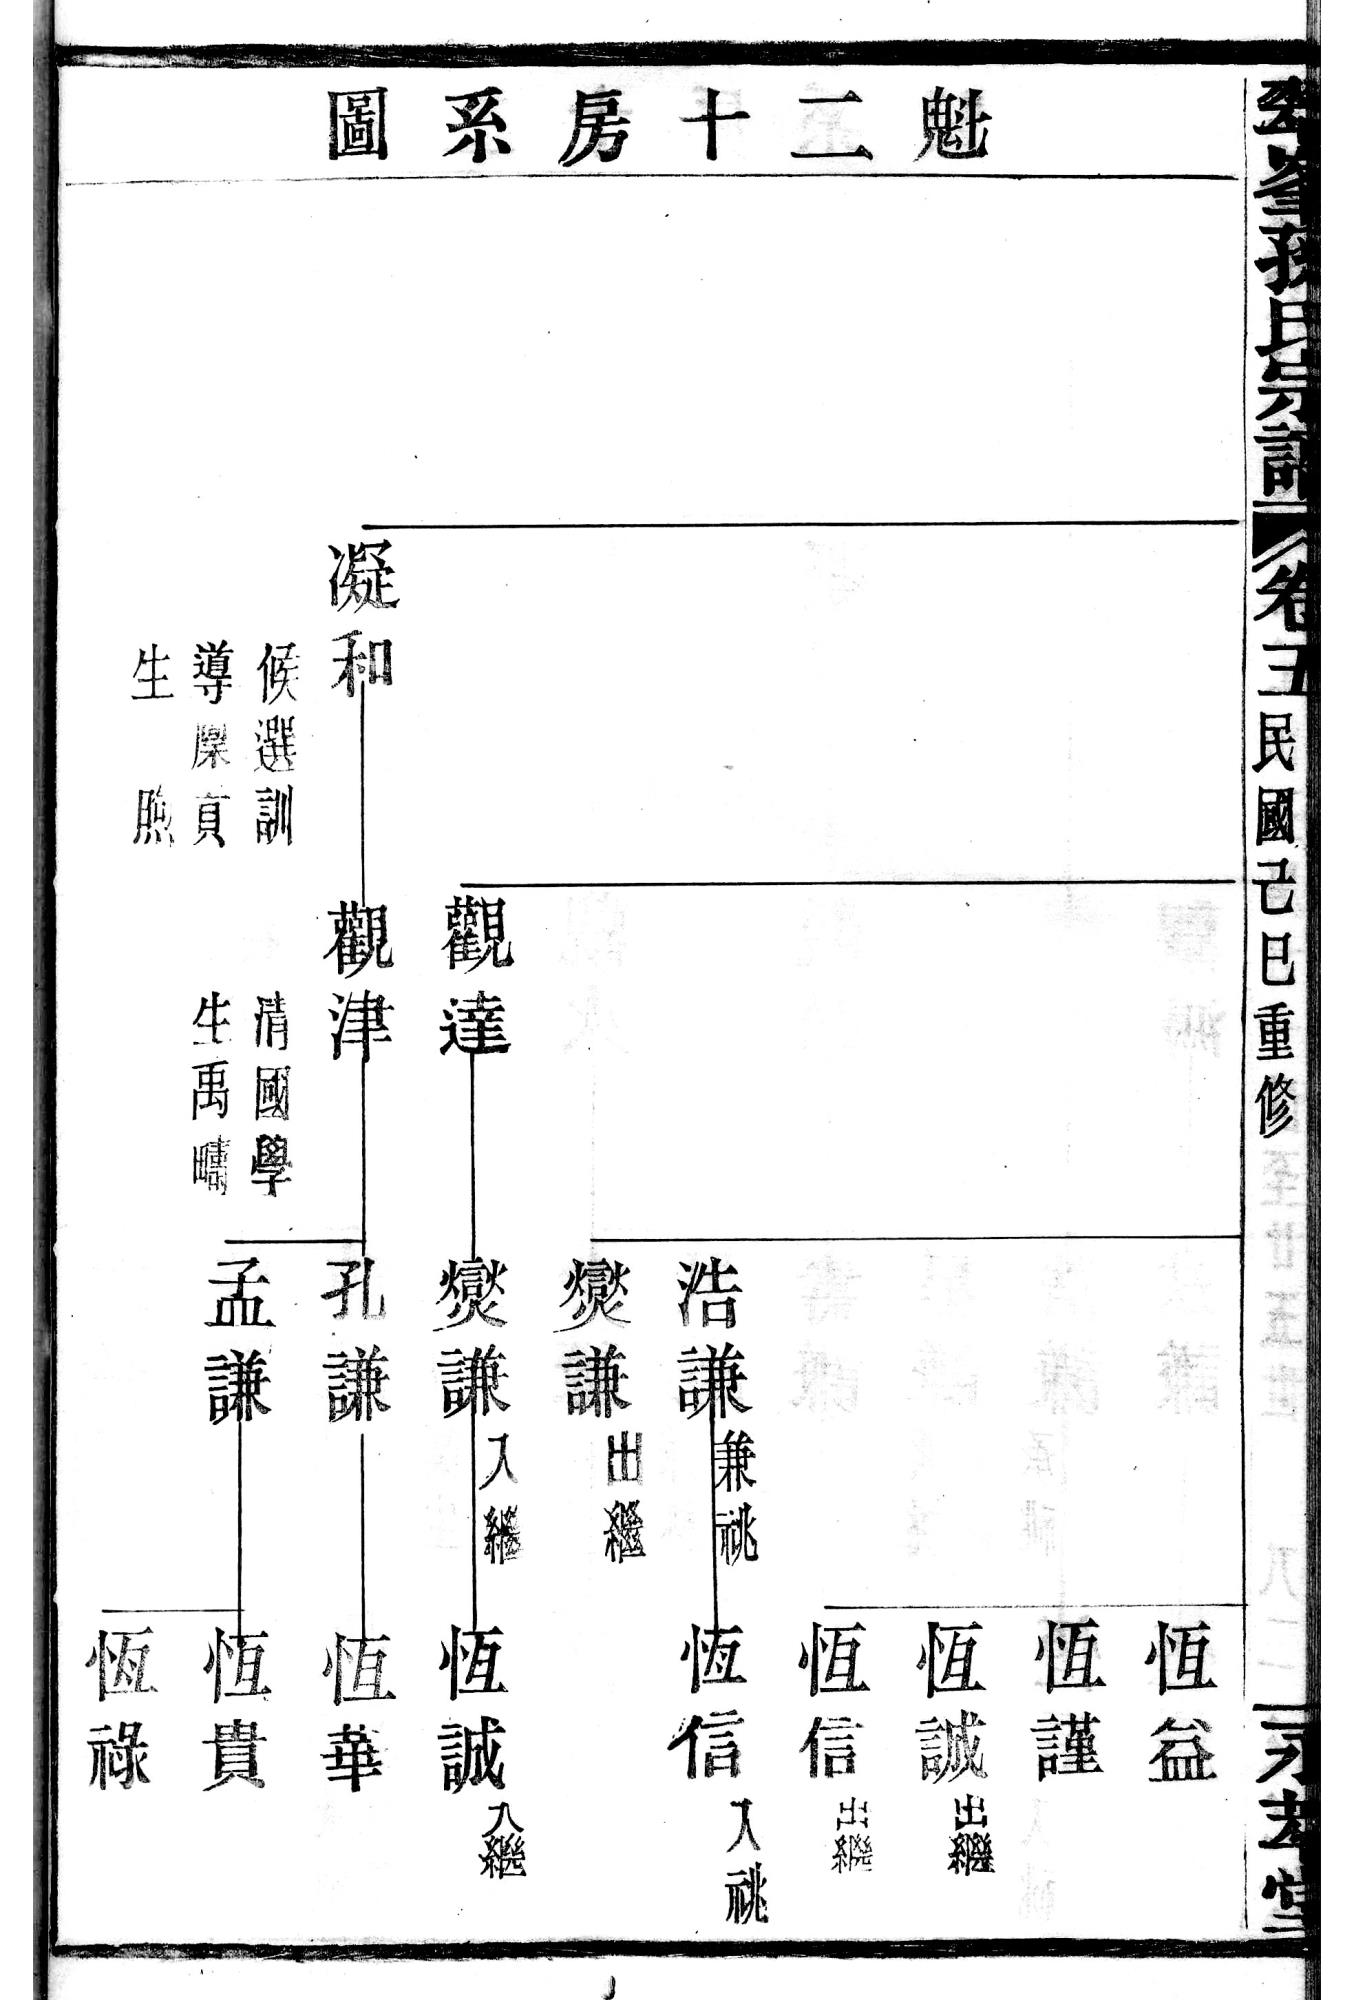 魁二十房系圖
孫氏宗譜
卷五
民國己巳重修
永孝堂
凝和
候選訓
導廩貢
生 煦
觀達
觀津
清國學
生禹疇
浩謙
兼祧
燮謙
出繼
燮謙
入繼
孔謙
孟謙
恆益
恆謹
恆誠
出繼
恆信
出繼
恆信
入祧
恆誠
入繼
恆華
恆貴
恆祿